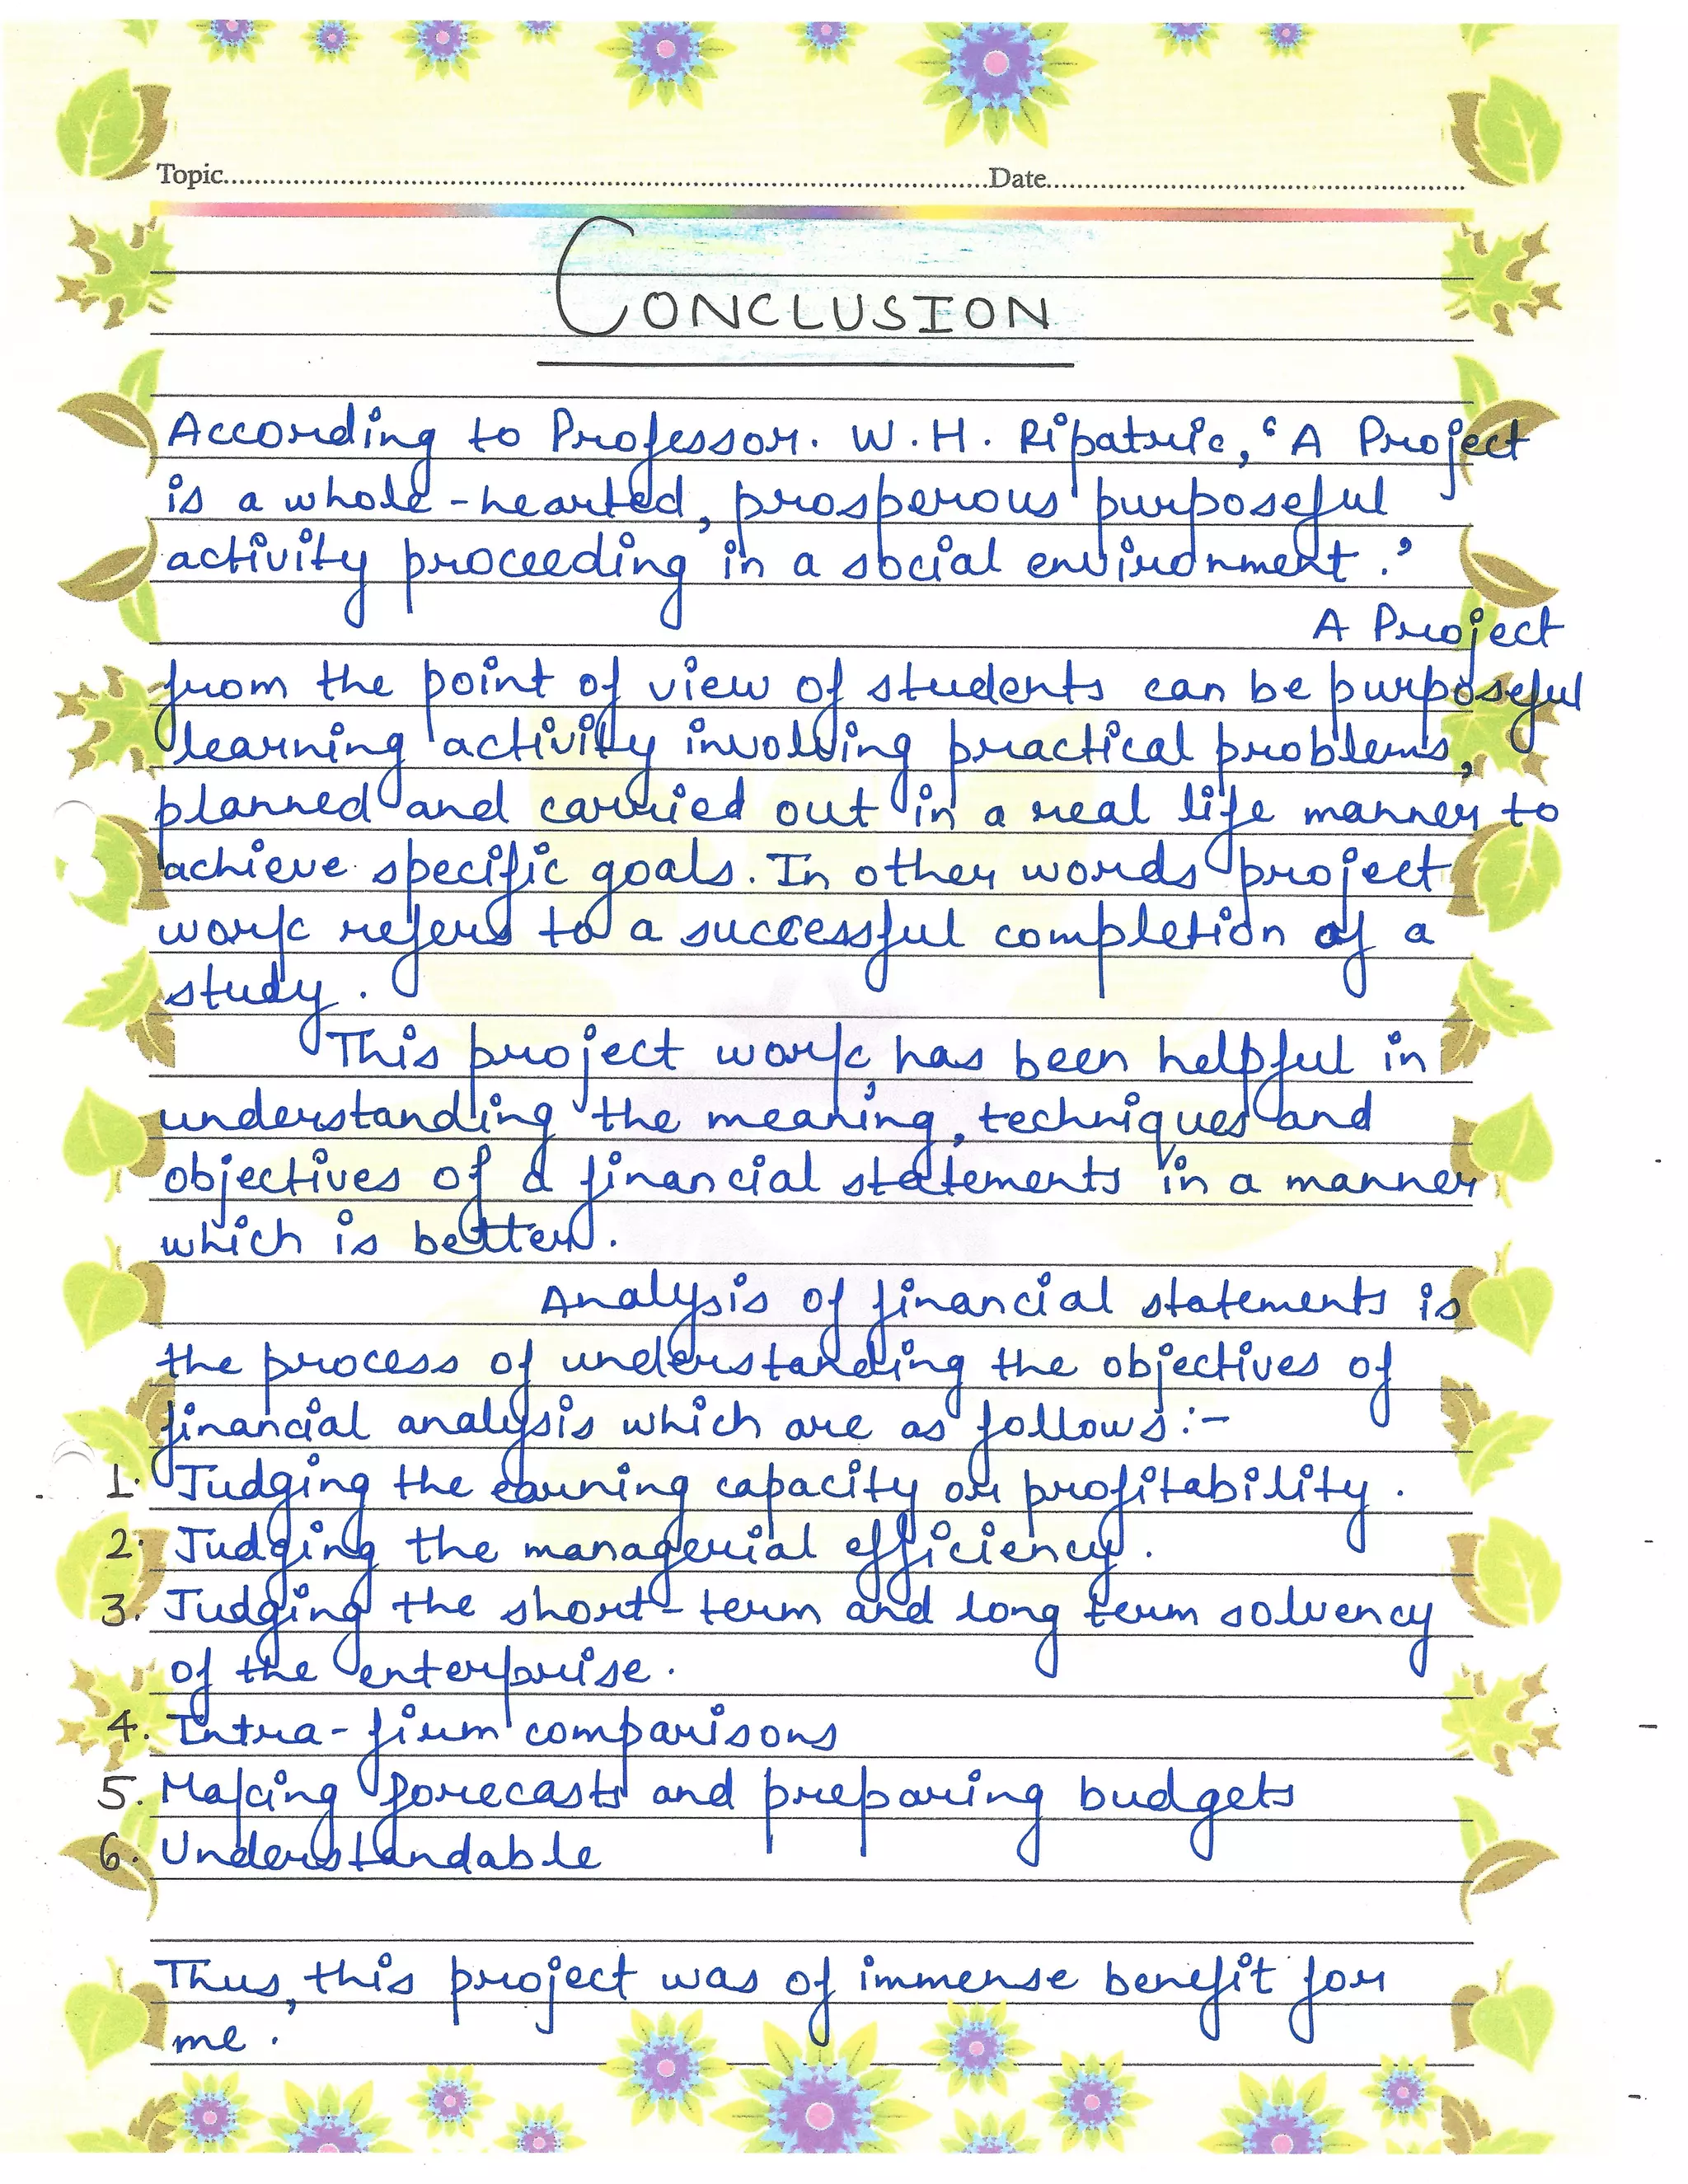 Topic....................Date....................
CONCLUSION
According to Professor. W.H. Ripatric, 'A Project
is a whole-hearted, prosperous purposeful
activity proceeding in a social environment.'
A Project
from the point of view of students can be purposeful
learning activity involving practical problems,
planned and carried out in a real life manner to
achieve specific goals. In other words project
work refers to a successful completion of a
study.
This project work, has been helpful in
understanding the meaning, techniques and
objectives of a financial statements in a manner
which is better.
Analysis of financial statements is
the process of understanding the objectives of
financial analysis which are as follows:-
1. Judging the earning capacity or profitability.
2. Judging the managerial efficiency.
3. Judging the short-term and long term solvency
of the enterprise.
4. Intra-firm comparisons
5. Making forecasts and preparing budgets
6. Understandable
Thus, this project was of immense benefit for
me.